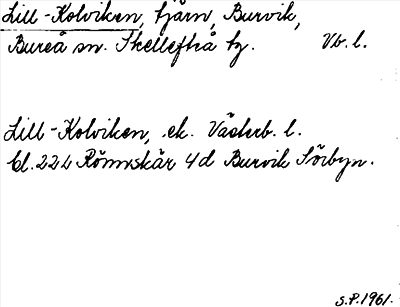 Lill-Kolviken, tjärn, Burvik,
Bureå sn. Skellefteå tg. Vb. l.
Lill-Kolviken, ek. Västerb. l.
Bl. 22 L Rönnskär 4d Burvik Sörbyn.
S.P. 1961.